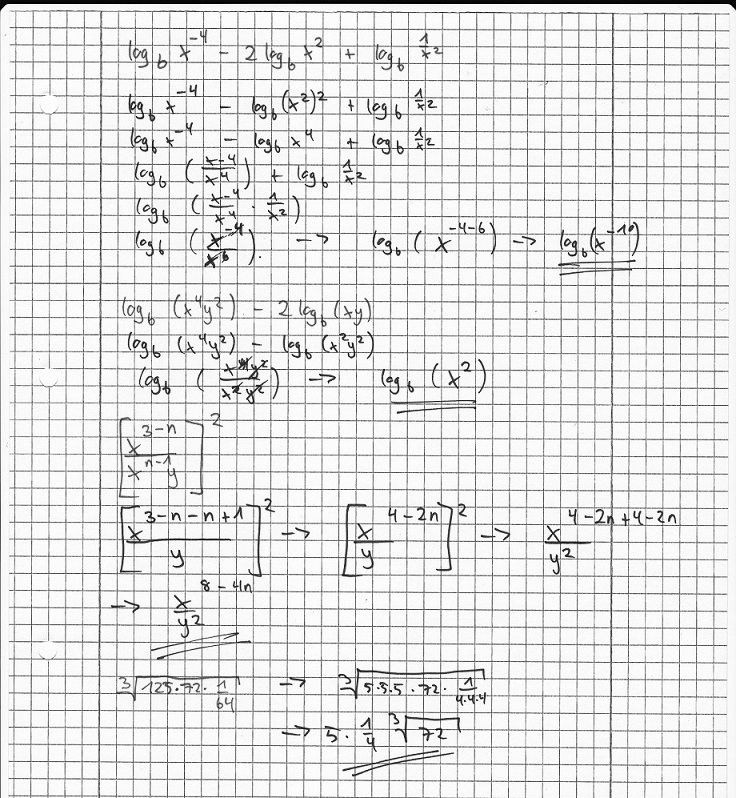 log_b x^-4 - 2 log_b x^2 + log_b 1/x^2
log_b x^-4 - log_b (x^2)^2 + log_b 1/x^2
log_b x^-4 - log_b x^4 + log_b 1/x^2
log_b (x^-4/x^4) + log_b 1/x^2
log_b (x^-4/x^4 · 1/x^2)
log_b (x^-4/x^6). -> log_b (x^-4-6) -> log_b (x^-10)
log_b (x^4y^2) - 2 log_b (xy)
log_b (x^4y^2) - log_b (x^2y^2)
log_b (x^4y^2/x^2y^2) -> log_b (x^2)
[x^3-n/x^n-1 y]^2
[x^3-n-n+1/y]^2 -> [x^4-2n/y]^2 -> x^4-2n+4-2n/y^2
-> x^8-4n/y^2
3√125·72·1/64 -> 3√5·5·5·72·1/4·4·4
-> 5·1/4 3√72